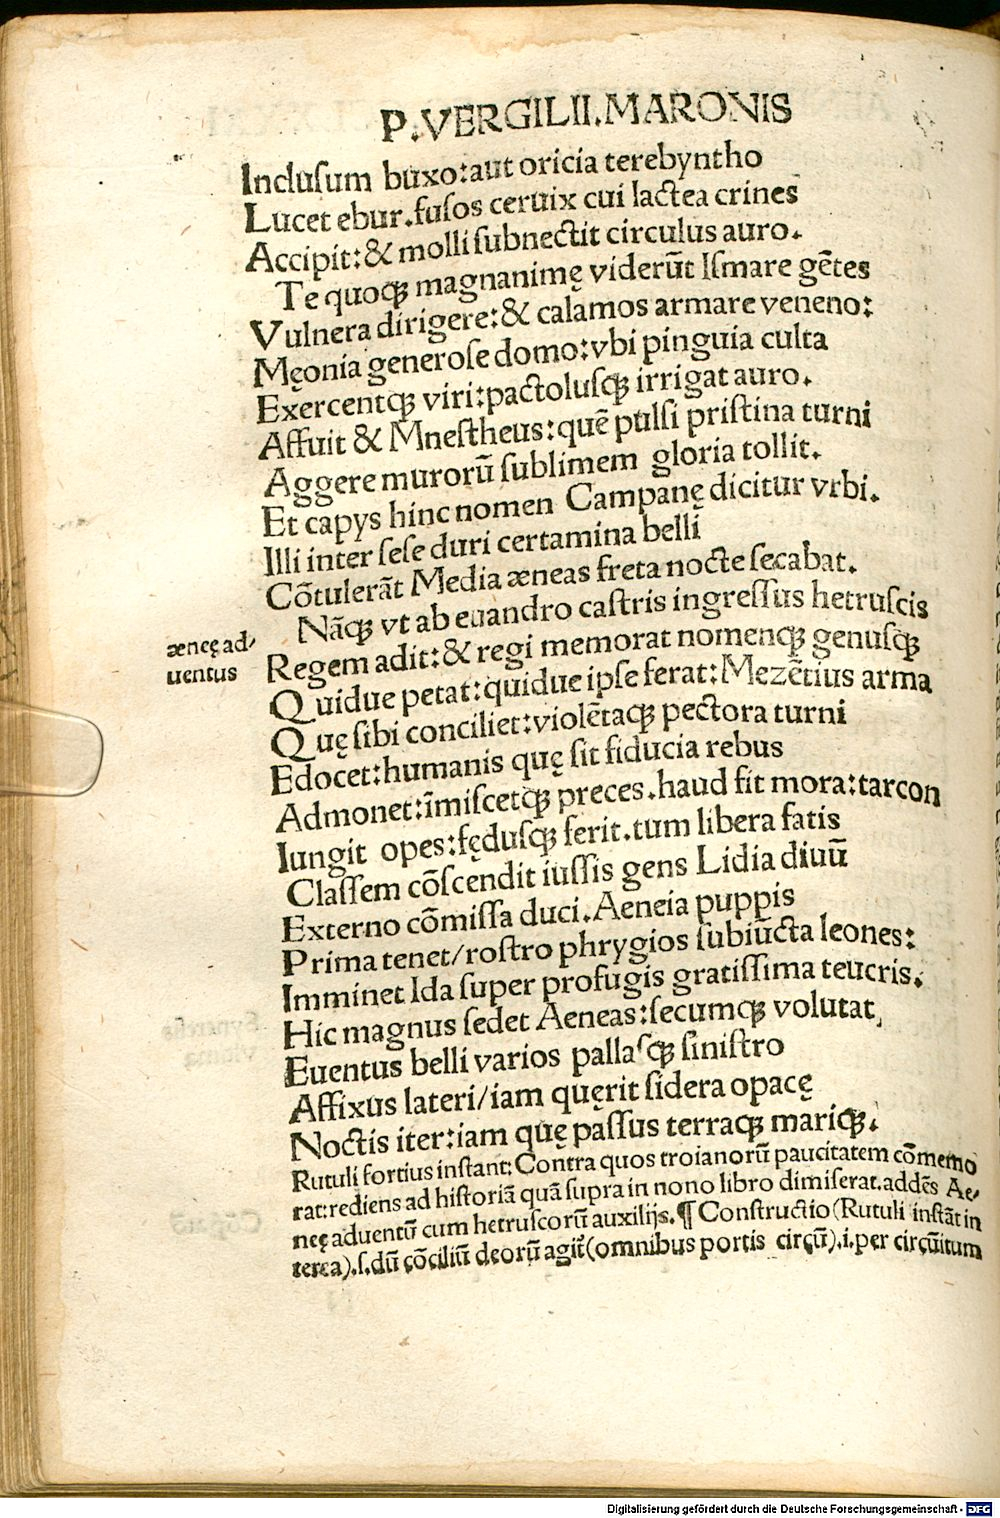 P.VERGILII.MARONIS
Incluſum buxo:aut oricia terebyntho
Lucet ebur.fuſos ceruix cui lactea crines
Accipit:& molli ſubnectit circulus auro.
Te quoqꝫ magnanimę viderūt Iſmare gētes
Vulnera dirigere:& calamos armare veneno:
Męonia generoſe domo:vbi pinguia culta
Exercentqꝫ viri:pactoluſqꝫ irrigat auro.
Affuit & Mneſtheus:quē pulſi priſtina turni
Aggere murorū ſublimem gloria tollit.
Et capys hinc nomen Campanę dicitur vrbi.
Illi inter ſeſe duri certamina belli
Cōtulerāt Media æneas freta nocte ſecabat.
Nāqꝫ vt ab euandro caſtris ingreſſus hetruſcis
æneę ad/
uentus
Regem adit:& regi memorat nomenqꝫ genuſqꝫ
Quidue petat:quidue ipſe ferat:Mezētius arma
Quę ſibi conciliet:violētaqꝫ pectora turni
Edocet:humanis quę ſit fiducia rebus
Admonet:īmiſcetqꝫ preces.haud fit mora:tarcon
Iungit opes:fęduſqꝫ ferit.tum libera fatis
Claſſem cōſcendit iuſſis gens Lidia diuū
Externo cōmiſſa duci.Aeneia puppis
Prima tenet/roſtro phrygios ſubiūcta leones:
Imminet Ida ſuper profugis gratiſſima teucris.
Hic magnus ſedet Aeneas:ſecumqꝫ volutat,
Euentus belli varios pallaſqꝫ ſiniſtro
Affixus lateri/iam quęrit ſidera opacę
Noctis iter:iam quę paſſus terraqꝫ mariqꝫ.
Rutuli fortius inſtant: Contra quos troianorū paucitatem cōmemo
rat:rediens ad hiſtoriā quā ſupra in nono libro dimiſerat.addēs Ae/
neę aduentū cum hetruſcorū auxilijs.¶ Conſtructio(Rutuli inſtāt in
terea).ſ.dū cōciliū deorū agiť(omnibus portis circū).i.per circūitum
Digitalisierung gefördert durch die Deutsche Forschungsgemeinschaft - DFG